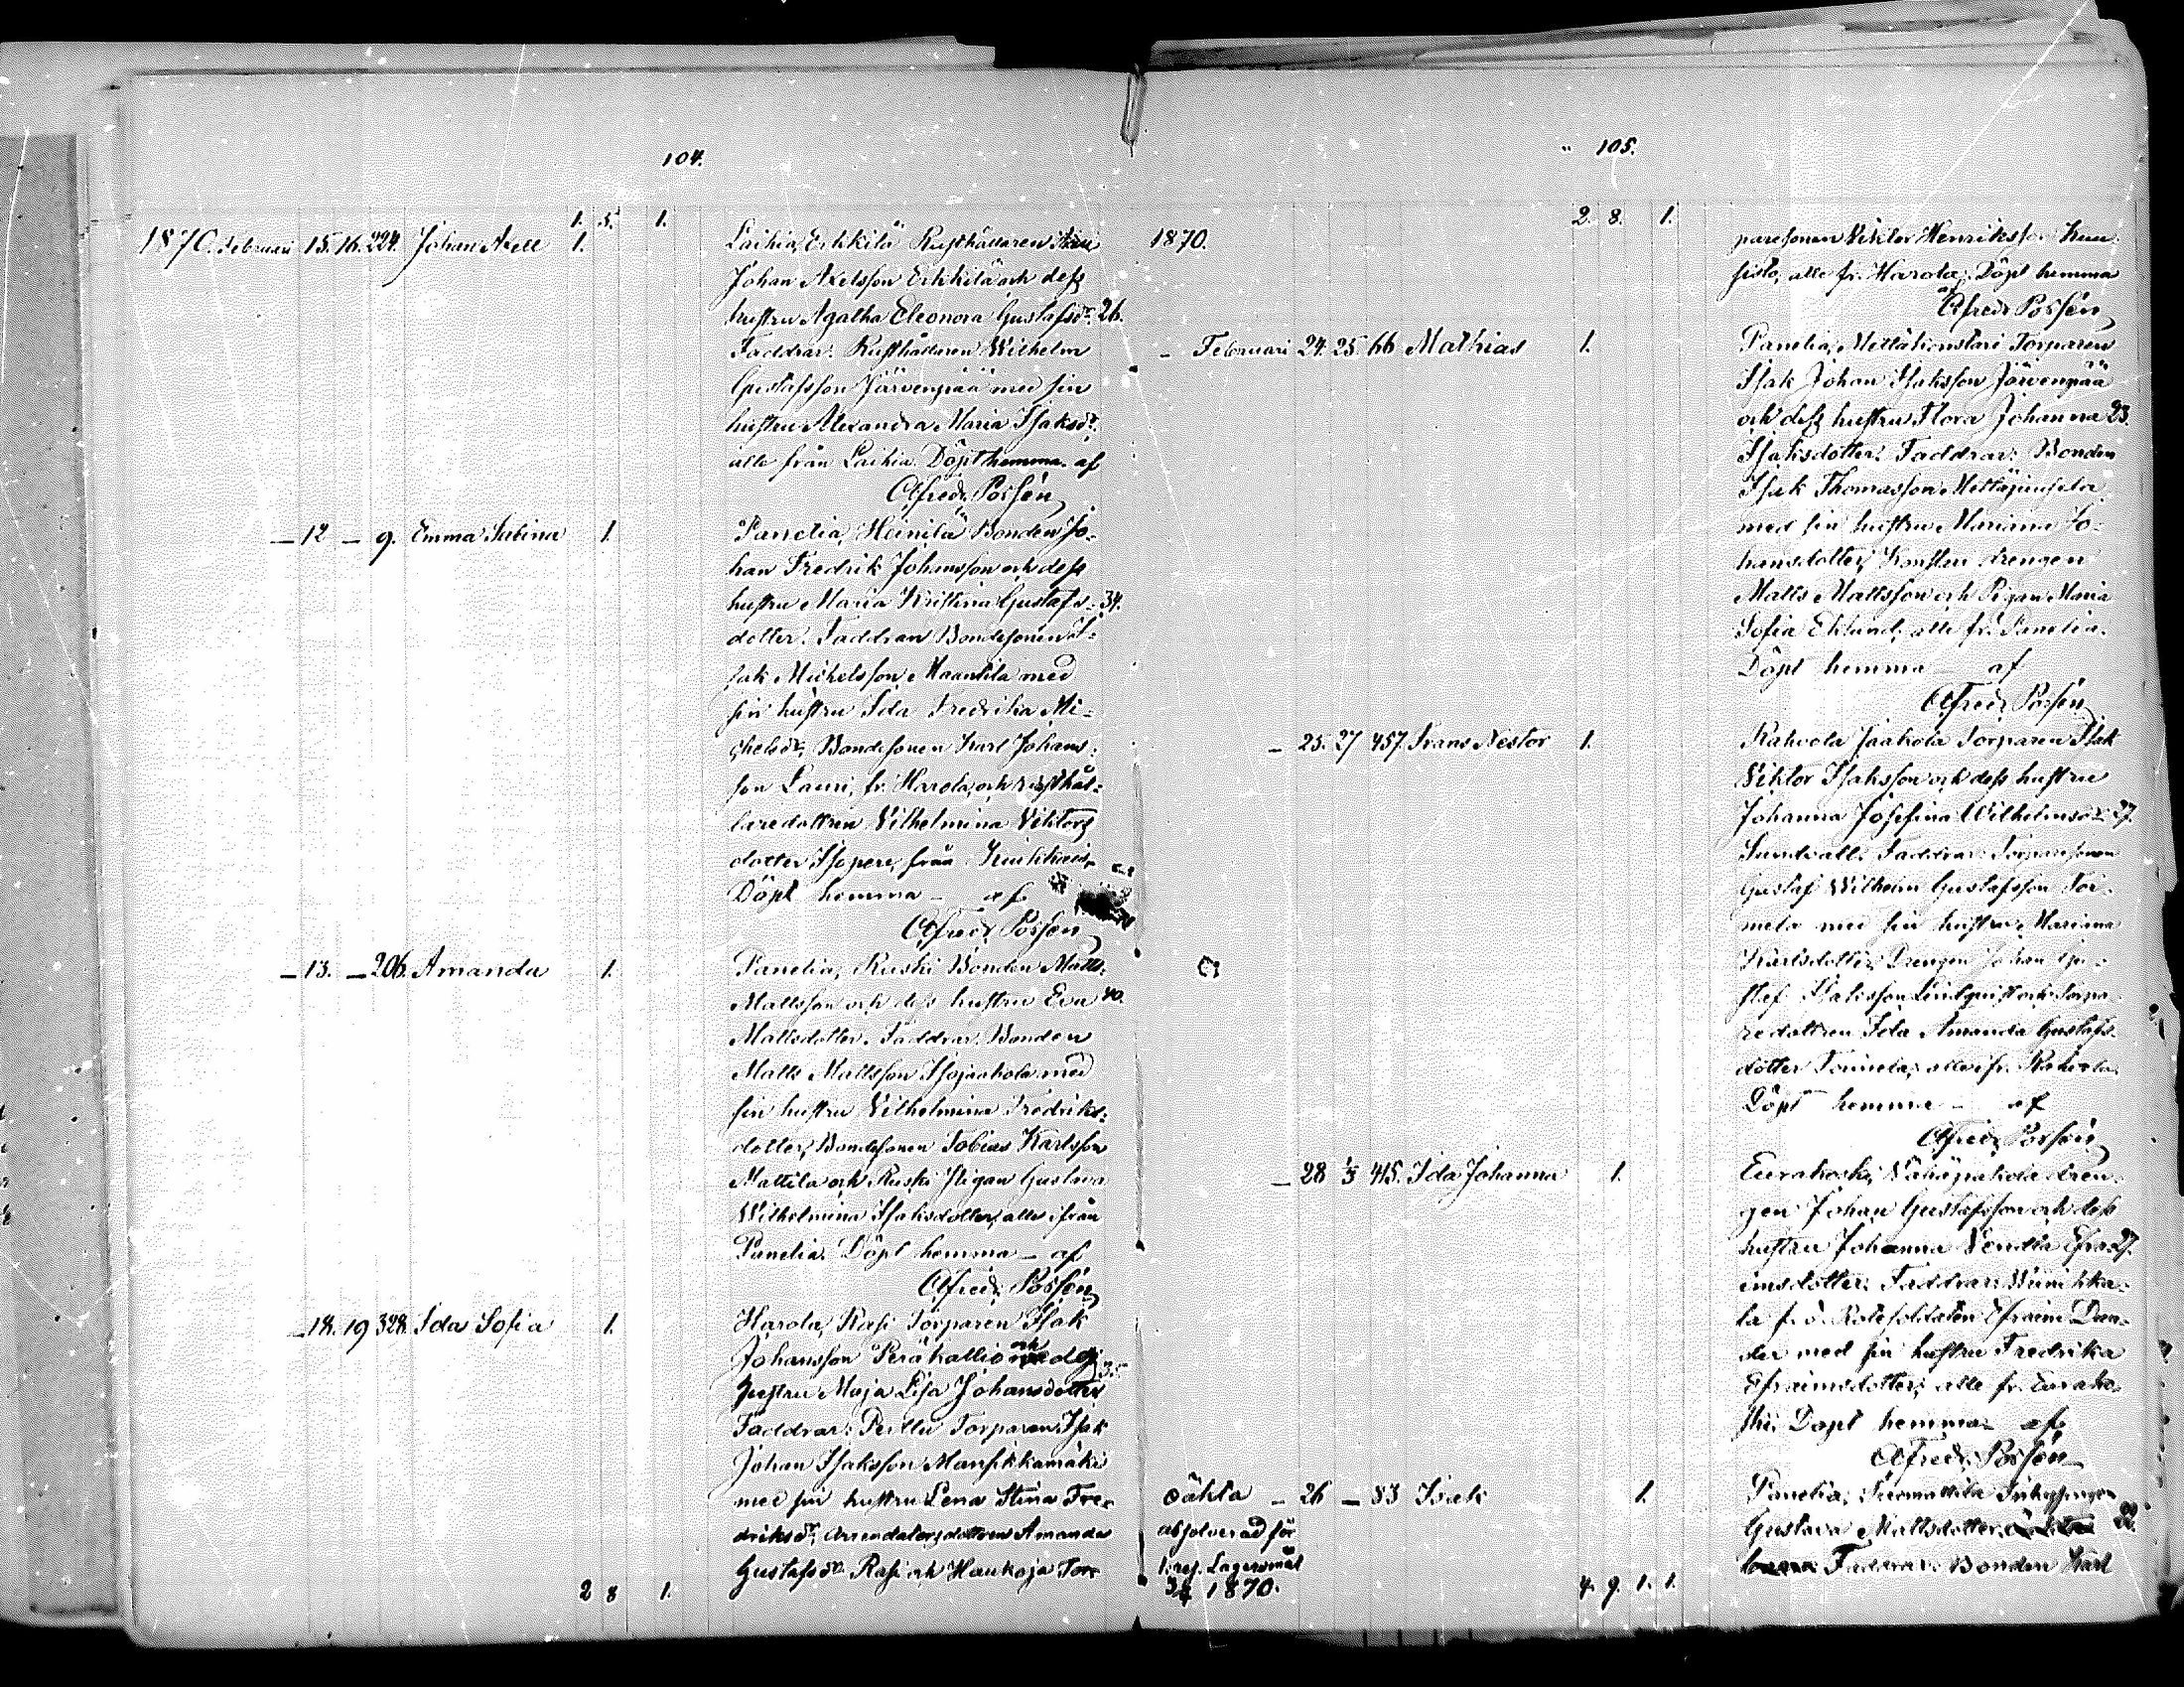 104.
1. 5. 1.
1870. Februari 15. 16. 224. Johan Axell 1. Laihia, Erkkilä Rusthållaren
Johan Axelsson Erkkilä och dess
hustru Agatha Eleonora Gustafsdr. 26.
Faddrar: Rusthållaren Wilhelm
Gustafsson Järvenpää med sin
hustru Alexandra Maria Isaksdr.
alle från Laihia. Döpt hemma af
Alfred Possén
— 12 — 9. Emma Sabina 1. Panelia, Heinilä Bonden Jo-
han Fredrik Johansson och dess
hustru Maria Kristina Gustafs- 34.
dotter. Faddrar Bondesonen I-
sak Michelsson Maantila med
sin hustru Ida Fredrika Mi-
chelsdr, Bondesonen Karl Johans-
son Lauri, fr. Harola, och rusthål-
laredottren Vilhelmina Viktors
dotter Isopere, från
Döpt hemma — af
Alfred Possén
— 13. — 206. Amanda 1. Panelia, Ruski Bonden Matts
Mattsson och dess hustru Eva 40.
Mattsdotter. Faddrar: Bonden
Matts Mattsson Isojaakola med
sin hustru Vilhelmina Fredriks-
dotter, Bondesonen Tobias Karlsson
Mattila och Ruski Pigan Gustava
Wilhelmina Isaksdotter, alle ifrån
Panelia. Döpt hemma — af
Alfred Possén
— 18. 19 328. Ida Sofia 1. Harola, Rasi Torparen Isak
Johansson Peräkallio och dess
hustru Maja Lisa Johansdotter 35.
Faddrar: Perttu Torparen Isak
Johan Isaksson Mansikkamäki
med sin hustru Lena Stina Fre-
driksdr, Arrendatorsdottren Amanda
Gustafsdr. Rasi och Haukoja Tor-
2 8 1.
105.
2. 8. 1.
1870. paresonen Viktor Henriksson Kuu-
sisto, alle fr. Harola. Döpt hemma
af
Alfred Possén
— Februari 24. 25. 66 Mathias 1. Panelia, Torparen
Isak Johan Isaksson Järvenpää
och dess hustru Flora Johanna 23.
Isaksdotter. Faddrar: Bonden
Isak Thomasson
med sin hustru Mariana Jo-
hansdotter, drengen
Matts Mattsson och Pigan Maria
Sofia Eklund, alle fr. Panelia.
Döpt hemma — af
Alfred Possén
— 25. 27 457. Frans Nestor 1. Rahvola Jaakola Torparen Isak
Viktor Isaksson och dess hustru
Johanna Josefina Wilhelmsdr. 27.
Sundvall. Faddrar: Torparesonen
Gustaf Wilhelm Gustafsson Tor-
mela med sin hustru Mariana
Karlsdotter, Drengen Johan Gu-
staf Isaksson Lindqvist och Torpa-
redottren Ida Amanda Gustafs-
dotter, alle ifr. Rahvola.
Döpt hemma — af
Alfred Possén
— 28 1/3 415. Ida Johanna 1. Eurakoski, Vähäpakola dren-
gen Johan Gustafsson och dess
hustru Johanna Vendla Efra- 27.
imsdotter. Faddrar:
la fr. d. Rotesoldaten Efraim Dan-
der med sin hustru Fredrika
Efraimsdotter, alle fr. Eurako-
ski. Döpt hemma — af
Alfred Possén
oäkta — 26 — 83 Isak 1. Panelia, Inhysespigan
absolverad för Gustava Mattsdotter 22.
1. res. Lägersmål Faddrar: Bonden Karl
3/4 1870. 4. 9. 1. 1.